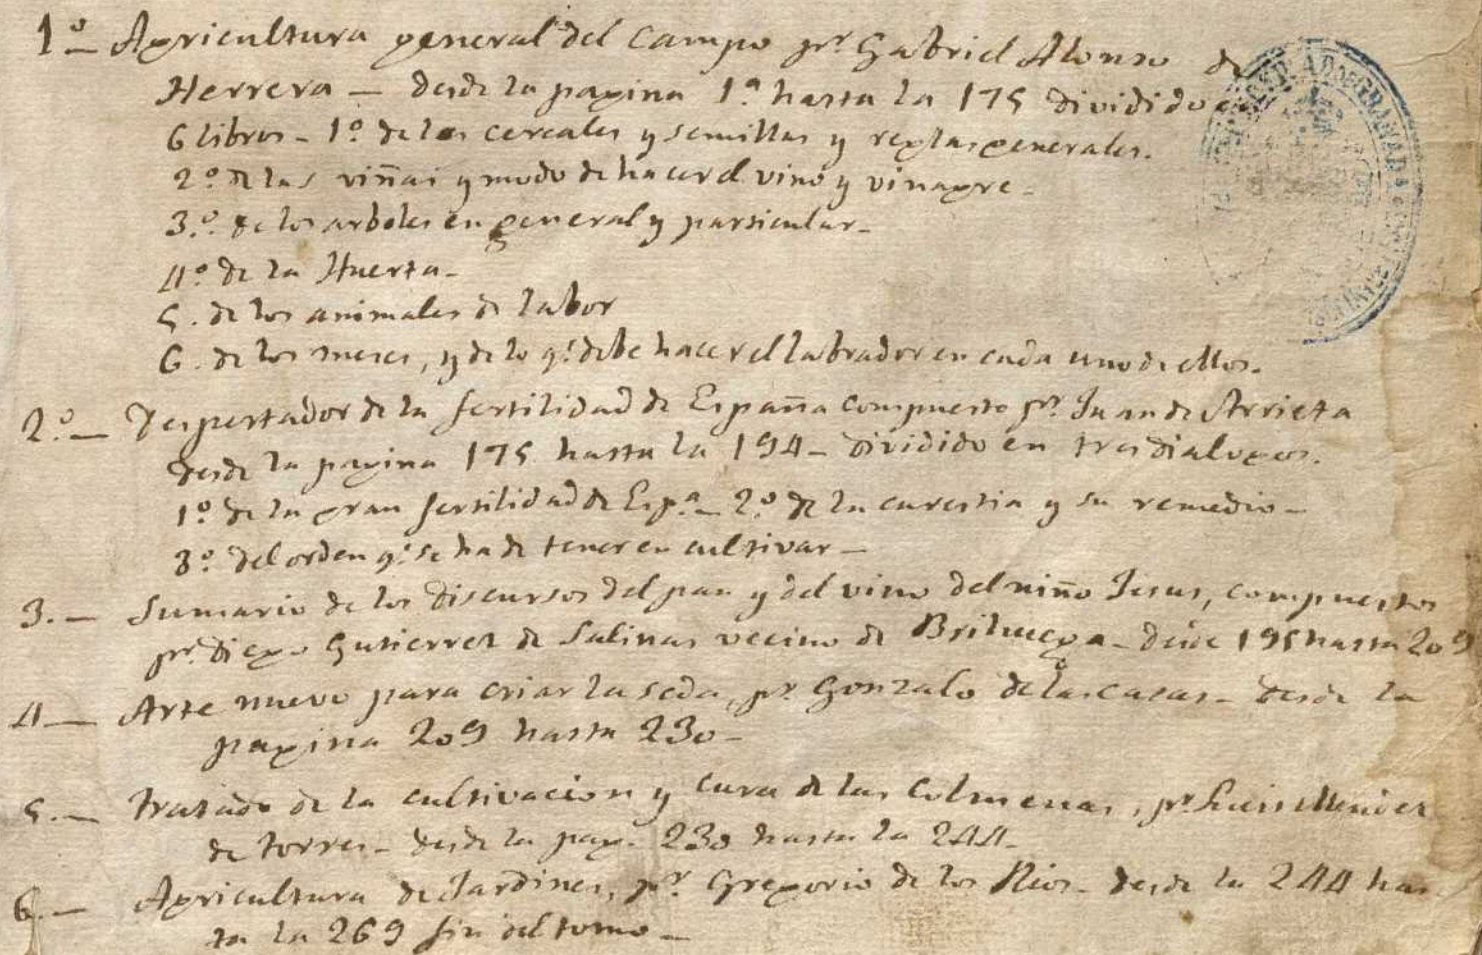 1º— Agricultura general del campo pr. Gabriel Alonso de
Herrera — desde la pagina 1ª. hasta la 175 dividido en
6 libros - 1º. de los cereales y semillas y reglas generales.
2º. de las viñas y modo de hacer el vino y vinagre -
3º. de los arboles en general y particular -
4º. de la Huerta -
5. de los animales de labor
6. de los meses, y de lo q.e debe hacer el labrador en cada uno de ellos.
2º.— Despertador de la fertilidad de España compuesto pr. Juan de Arrieta
desde la pagina 175 hasta la 194 - dividido en tres dialogos.
1º. de la gran fertilidad de Espª. - 2º. de la carestia y su remedio -
3º. del orden q.e se ha de tener en cultivar -
3.— Sumario de los discursos del pan y del vino del niño Jesus, compuestos
pr. diego Gutierrez de Salinas vecino de Brihuega - desde 195 hasta 209
4— Arte nuevo para criar la seda, pr. Gonzalo de las casas - desde la
pagina 209 hasta 230 -
5.— tratado de la cultivacion y cura de las Colmenas, pr. Luis Mendez
de torres - desde la pag. 230 hasta la 244 -
6.— Agricultura de Jardines, pr. Gregorio de los Rios - desde la 244 has
ta la 269 fin del tomo -